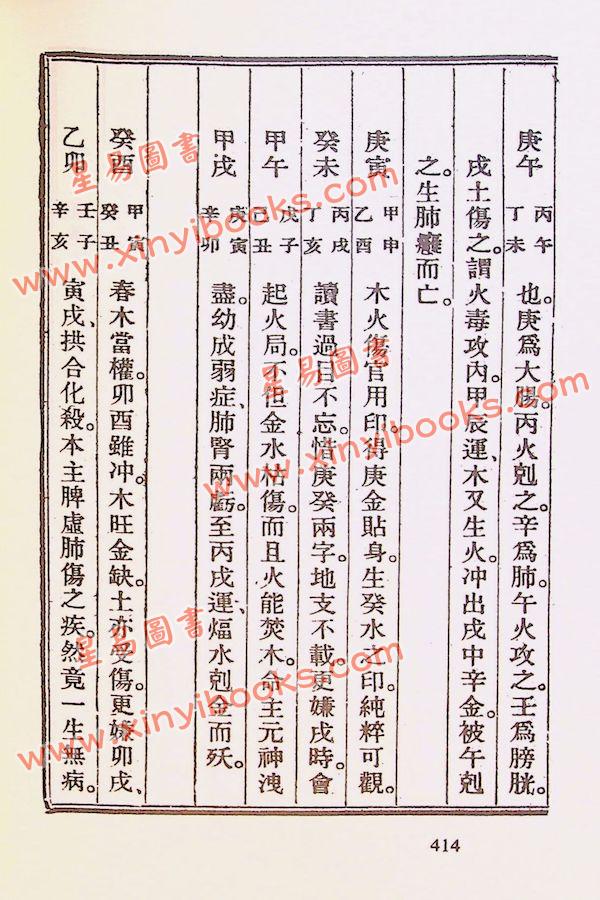 庚午 丙午 丁未 也。庚爲大腸。丙火剋之。辛爲肺。午火攻之。壬爲膀胱。
戌土傷之。謂火毒攻內。甲辰運、木又生火。冲出戌中辛金。被午剋
之。生肺癰而亡。
庚寅 甲申 乙酉 木火傷官用印。得庚金貼身。生癸水之印。純粹可觀。
癸未 丙戌 丁亥 讀書過目不忘。惜庚癸兩字。地支不載。更嫌戌時。會
甲午 戊子 己丑 起火局。不但金水枯傷。而且火能焚木。命主元神洩
甲戌 庚寅 辛卯 盡。幼成弱症、肺腎兩虧。至丙戌運、煏水剋金而殀。
癸酉 甲寅 癸丑 春木當權。卯酉雖冲。木旺金缺。土亦受傷。更嫌卯戌、
乙卯 壬子 辛亥 寅戌、拱合化殺。本主脾虛肺傷之疾。然竟一生無病。
414
星易圖書
www.xinyibooks.com
星易圖書
www.xinyibooks.com
星易圖書
www.xinyibooks.com